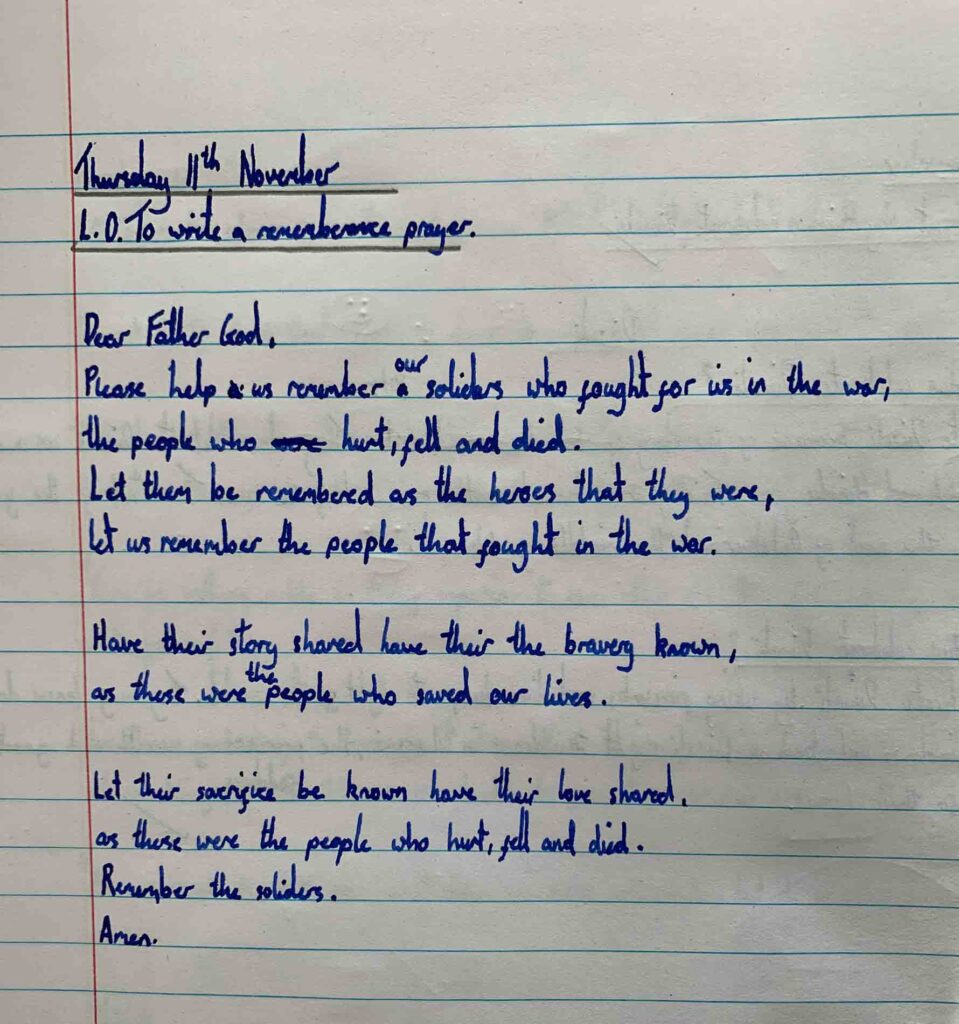 Thursday 11th November
L.O. To write a rememberance prayer.
Dear Father God,
Please help us remember our soliders who fought for us in the war,
the people who hurt, fell and died.
Let them be remembered as the heroes that they were,
let us remember the people that fought in the war.
Have their story shared have their the bravery known,
as these were the people who saved our lives.
Let their sacrifice be known have their love shared,
as these were the people who hurt, fell and died.
Remember the soliders.
Amen.